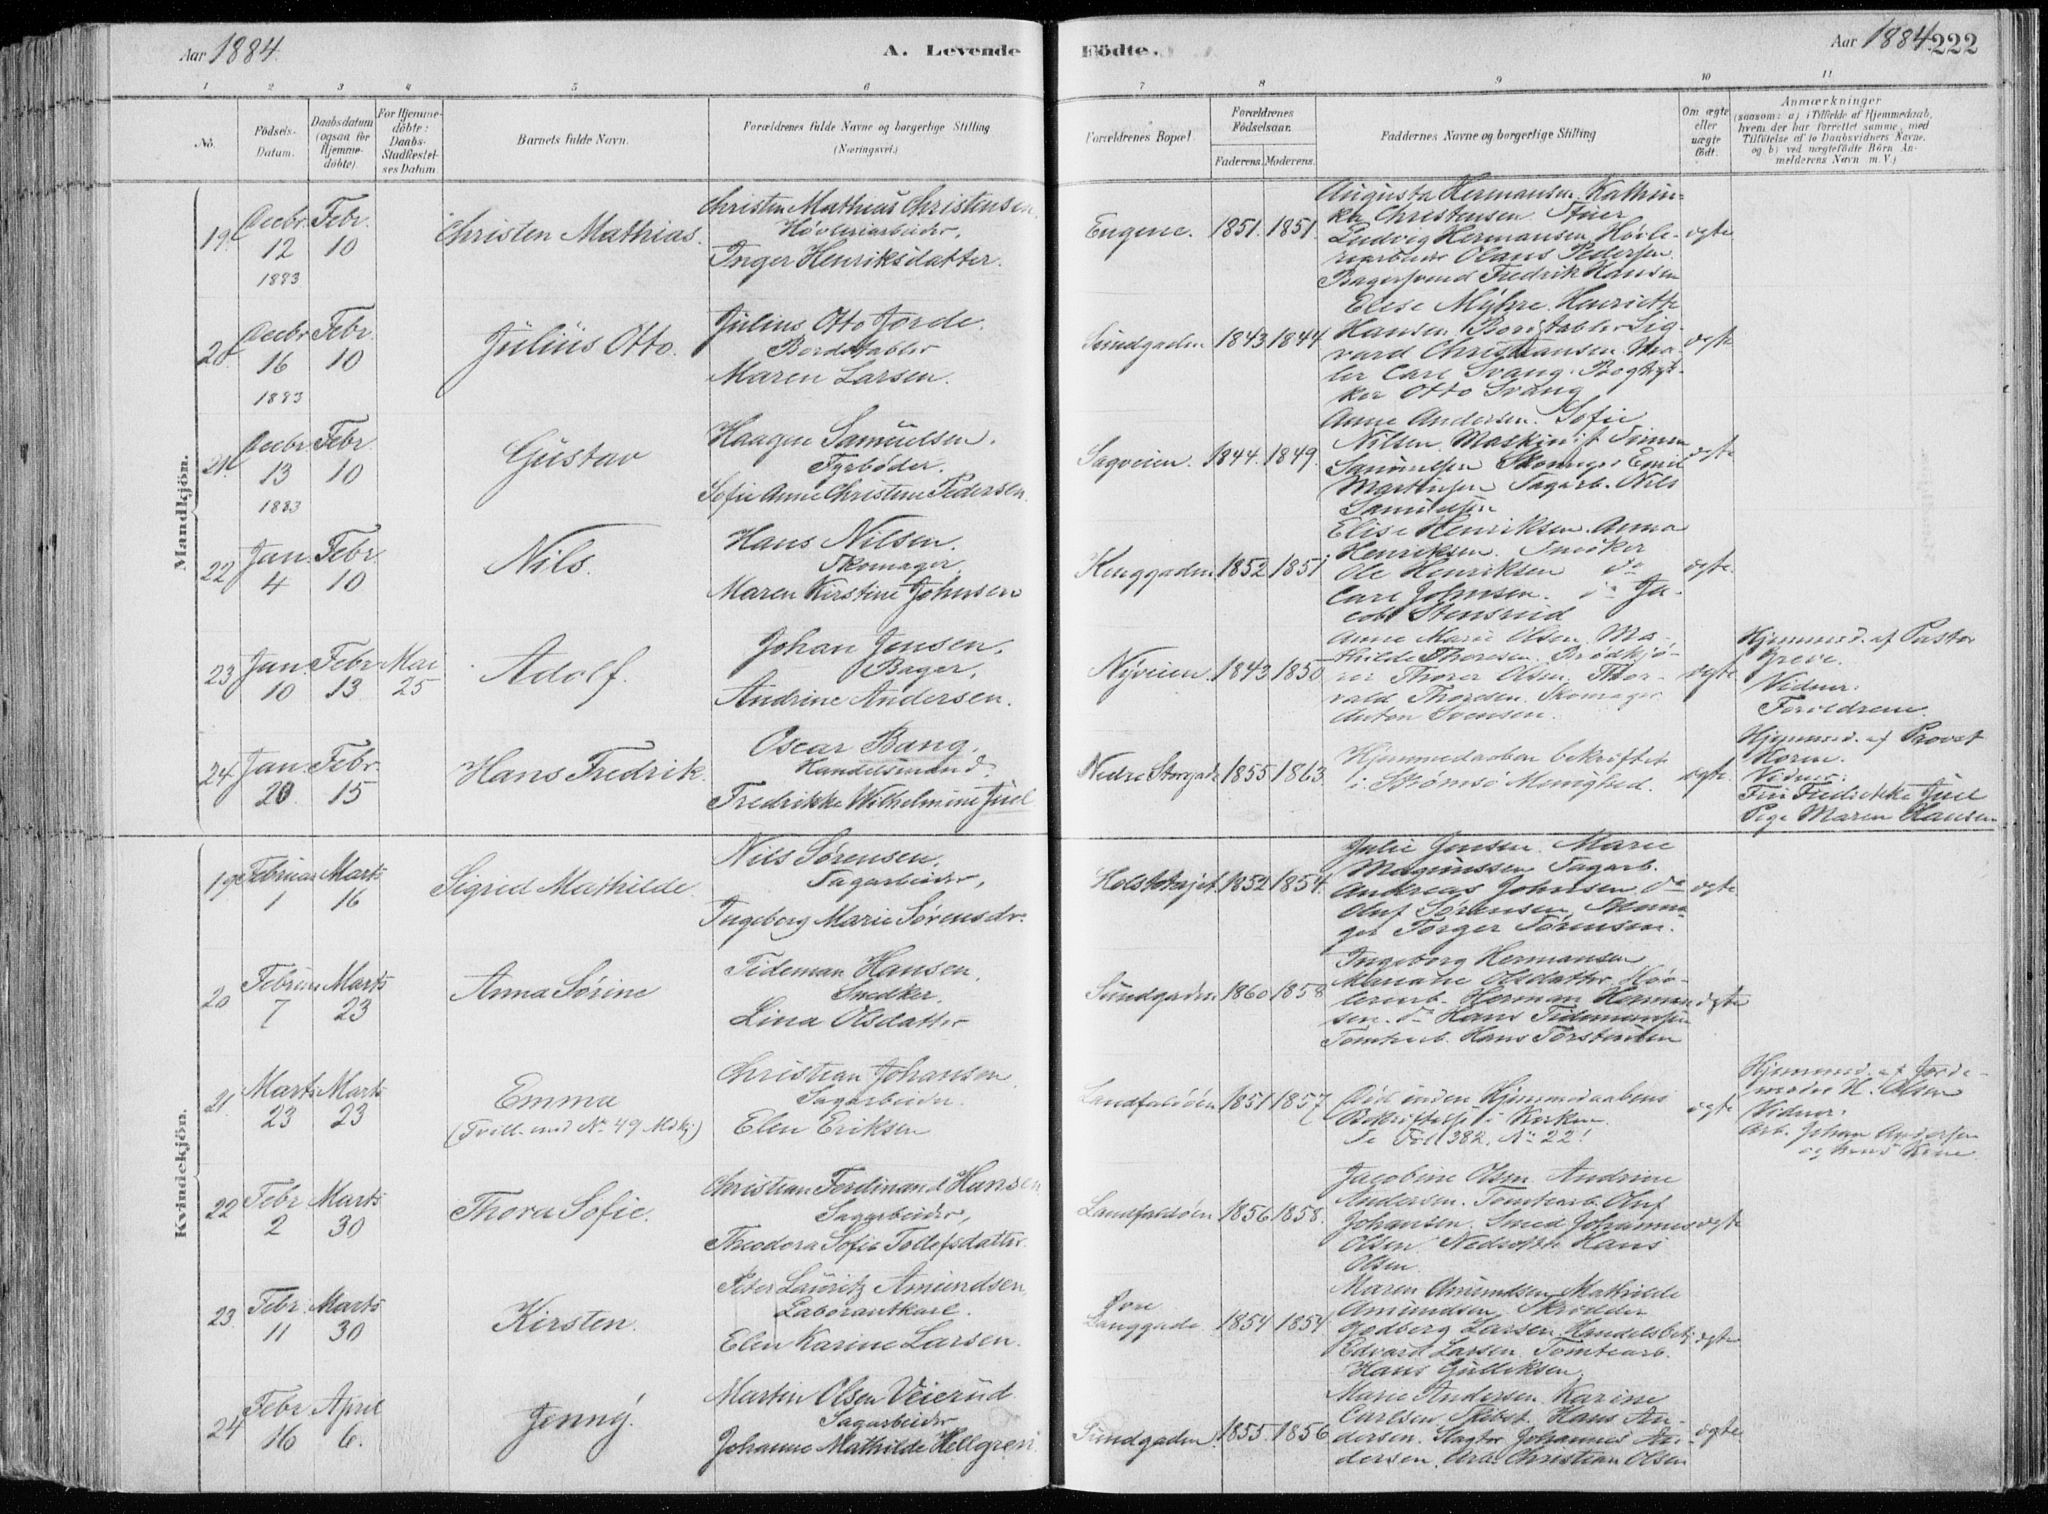 Aar 1884.
A. Levende
Födte.
Aar 1884
222
1 2 3 4 5 6 7 8 9 10 11
No.
Födsels-
Datum.
Daabsdatum
(ogsaa for
Hjemme-
döbte).
For Hjemme-
döbte:
Daabs-
Stadfæstel-
ses Datum.
Barnets fulde Navn.
Forældrenes fulde Navne og borgerlige Stilling
(Næringsvei.)
Forældrenes Bopæl.
Forældrenes
Födselsaar.
Faderens. Moderens.
Faddernes Navne og borgerlige Stilling
Om ægte
eller
uægte
födt.
Anmærkninger
(saasom: a) i Tilfælde af Hjemmedaab,
hvem der har forrettet samme, med
Tilföielse af to Daabsvidners Navne.
og b) ved uægtefödte Börn An-
melderens Navn m.V.)
Mandkjön.
19
Decbr. 12 1883
Febr. 10
Christen Mathias.
Christen Mathias Christensen.
Høvleriarbeider,
Inger Henriksdatter.
Eugene. 1851. 1851.
Augusta Hermansen. Kathin-
ka Christensen.
Ludvig Hermansen. Høvle-
riarbeider Olaus Pedersen.
Bagersvend Fredrik Hansen
ægte
20
Decbr 16 1883
Febr. 10
Julius Otto.
Julius Otto Jorde.
Bordstabler
Maren Larsen.
Sundgaden 1843 1844
Elise Myhre. Henriette
Hansen. Bordstabler Sig-
vard Christiansen. Ma-
ler Carl Svang. Bogtryk-
ker Otto Svang
ægte
21
Decbr 13 1883
Febr 10
Gustav
Haagen Samuelsen.
Fyrbøder.
Sofie Anne Christine Pedersen.
Sagveien. 1844. 1849.
Anne Andersen. Sofie
Nilsen. Maskinist Simen
Samuelsen Skomager Emil
Martinsen Sagarb. Nils
Samuelsen
ægte
22
Jan. 4
Febr. 10
Nils.
Hans Nilsen.
Skomager.
Maren Kirstine Johnsen
Kruggaden 1852 1851
Elise Henriksen. Anna
Henriksen.
Ole Henriksen do
Carl Johnsen. do Ja-
cob Stensrud
ægte.
23
Jan. 10
Febr 13
Mai 25
Adolf.
Johan Jensen.
Bager,
Andrine Andersen.
Nyveien. 1843. 1850
Anne Marie Olsen. Ma-
thilde Thoresen. Brødkjø-
rer Thorer Olsen. Thor-
vald Thoresen. Skomager
Anton Svensen.
ægte
Hjemmed. af Pastor
Greve.
Vidner:
Forældrene.
24
Jan. 20.
Febr. 15
Hans Fredrik.
Oscar Bang.
Handelsmand.
Fredrikke Wilhelmine Juel
Nedre Storgade 1855 1863.
Hjemmedaaben bekræftet
i Strømsø Menighed.
ægte.
Hjemmed. af Provst
Koren.
Vidner:
Fru Fredrikke Juel
Pige Maren Hansen
Kvindekjön.
19
Februar 1
Marts 16
Sigrid Mathilde.
Nils Sørensen,
Sagarbeider,
Ingeborg Marie Sørensdr.
1852 1854.
Julie Jensen. Marie
Magnussen Sagarb.
Andreas Johnsen do
Oluf Sørensen. Skoma-
ger Torger Sørensen.
ægte
20
Februar 7
Marts 23
Anna Sørine
Tideman Hansen.
Snedker.
Lina Olsdatter
Sundgaden 1860 1858
Ingeborg Hermansen
Mariane Olsdatter Høv-
leriarb. Herman Herman-
sen. do Hans Tidemansen
Tomtearb. Hans Torstensen
ægte
21.
Marts 23
Marts 23
Emma
(Tvill. med No 49 Mdkj.)
Christian Johansen
Sagarbeider.
Elen Eriksen
Landfaldøen 1851 1857
Død inden Hjemmedaabens
Bekræftelse i Kirken.
Se Fol 382. No 22!
ægte
Hjemmed. af Jorde-
moder H. Olsen
Vidner:
Arb. Johan Andersen
og hans Kone
22
Febr 2
Marts 30
Thora Sofie.
Christian Ferdinand Hansen
Sagarbeider,
Theodora Sofie Tollefsdatter.
Landfaldøen 1856 1858.
Jacobine Olsen Andrine
Andersen. Tomtearb. Oluf
Johansen. Smed Johannes
Olsen. Hans
Olsen.
ægte
23.
Febr. 11
Marts 30
Kirsten.
Peter Lauritz Amundsen
Laborantkarl.
Elen Karine Larsen.
Øvre
Langgade 1854 1854
Maren Amundsen Mathilde
Amundsen. Skrædder
Godberg Larsen. Handelsbetj.
Edvard Larsen. Tomtearb.
Hans Gulliksen
ægte
24
Febr 16
April 6.
Jenny.
Martin Olsen Veierud
Sagarbeider
Johanne Mathilde Hellgren.
Sundgaden. 1855. 1856
Marie Andersen. Karine
Carlsen. Hans An-
dersen. Slagter Johannes An-
dersen. Arb. Christian Olsen
ægte.